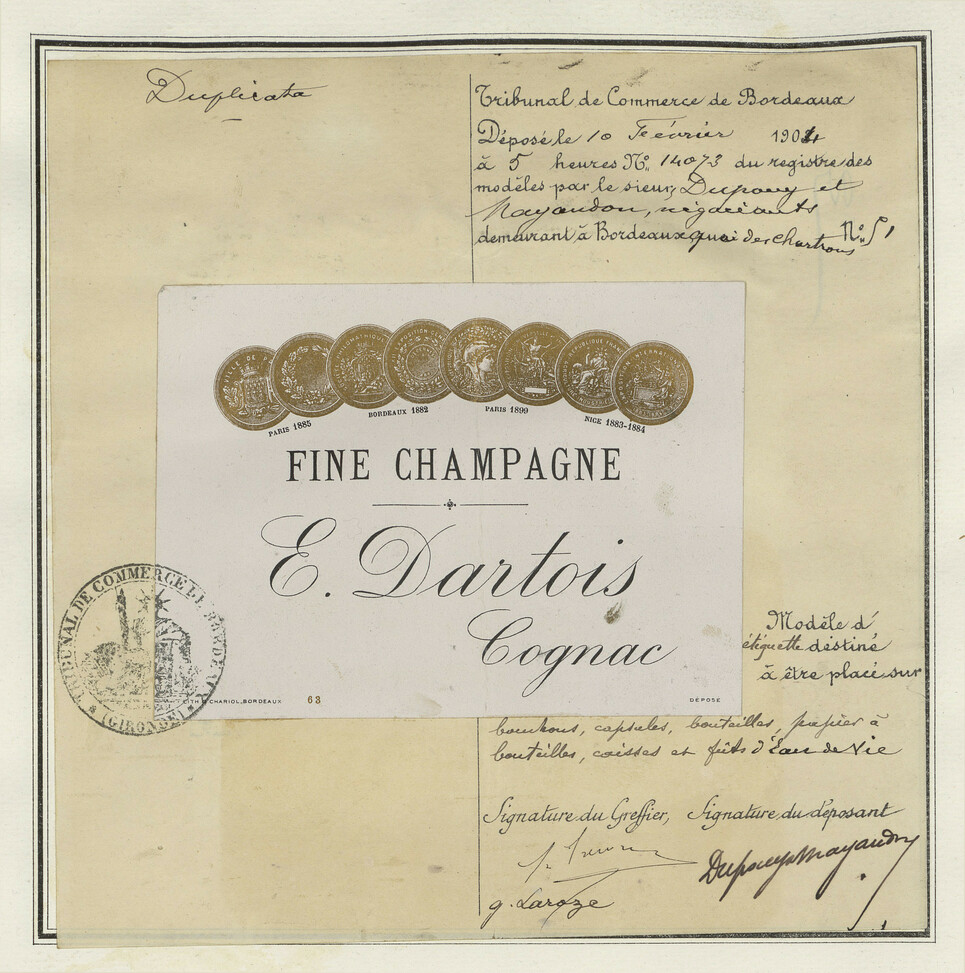 Duplicata
Tribunal de Commerce de Bordeaux
Déposé le 10 Février 1904
à 5 heures No. 14073 du registre des
modèles par le sieur, Dupouy et
Mayaudon, négociants
demeurant à Bordeaux quai des Chartrons No. 51
PARIS 1885
BORDEAUX 1882
PARIS 1899
NICE 1883-1884
FINE CHAMPAGNE
E. Dartois
Cognac
CHARIOL, BORDEAUX 63
DÉPOSÉ
TRIBUNAL DE COMMERCE DE BORDEAUX
(GIRONDE)
Modèle d'
étiquette destiné
à être placé sur
bouchons, capsules, bouteilles, papier à
bouteilles, caisses et fûts d'Eau de Vie
Signature du Greffier, Signature du déposant
Dupouy & Mayaudon
g. Laroze